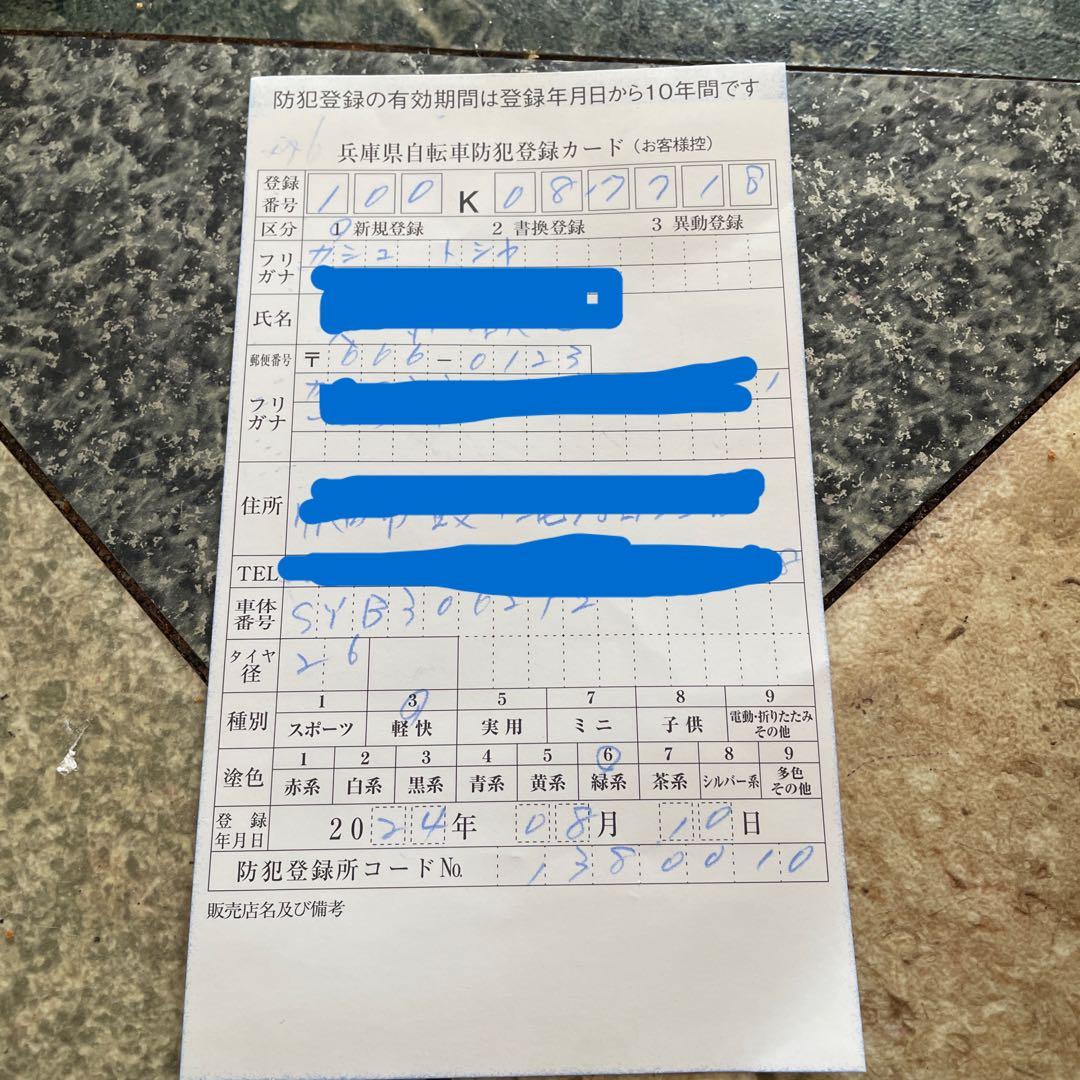 防犯登録の有効期間は登録年月日から10年間です
兵庫県自転車防犯登録カード(お客様控)
登録番号 100 K 0817718
区分 1 新規登録 2 書換登録 3 異動登録
フリガナ カシュ トシヤ
氏名
郵便番号 〒666-0123
フリガナ
住所
TEL 8
車体番号 SYB306212
タイヤ径 26
種別 1 スポーツ 3 軽快 5 実用 7 ミニ 8 子供 9 電動・折りたたみその他
塗色 1 赤系 2 白系 3 黒系 4 青系 5 黄系 6 緑系 7 茶系 8 シルバー系 9 多色その他
登録年月日 2024年08月10日
防犯登録所コードNo. 1380010
販売店名及び備考